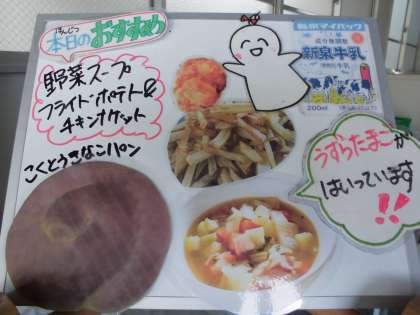 ほんじつ
本日のおすすめ
野菜スープ
フライドポテト&
チキンナゲット
こくとうきなこパン
新泉牛乳
200ml
うずらたまごが
はいっています
!!